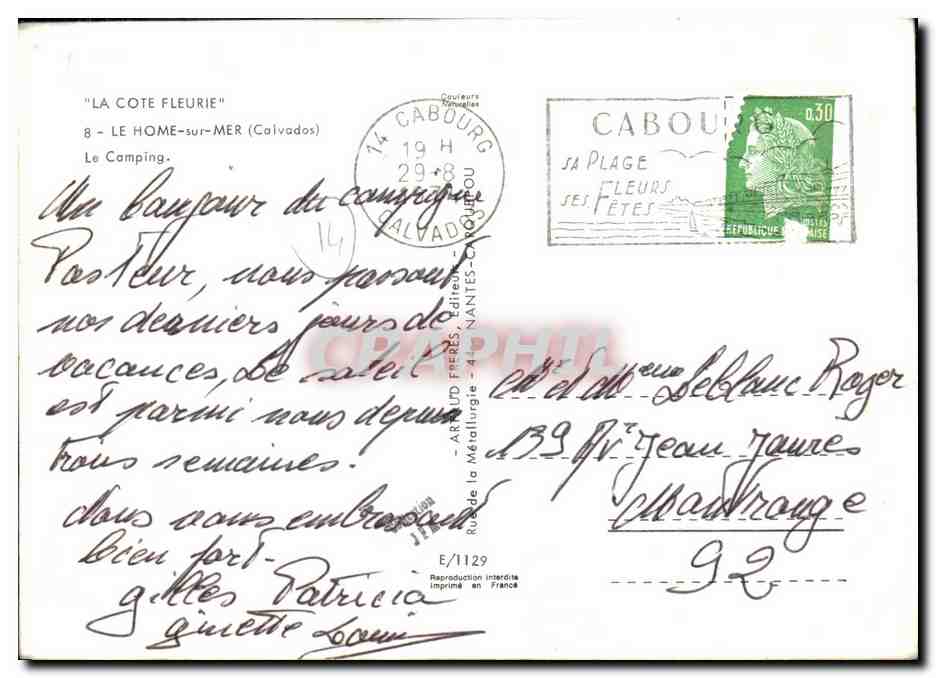 "LA COTE FLEURIE"
8 - LE HOME-sur-MER (Calvados)
Le Camping.
Couleurs
Naturelles
14 CABOURG
19 H
29-8
CALVADOS
CABOURG
SA PLAGE
SES FLEURS
FÊTES
0,30
POSTES
REPUBLIQUE FRANÇAISE
14
Un bonjour du campeigne
Pasteur, nous passons
nos derniers jours de
vacances, Le soleil
est parmi nous depuis
trois semaines.
Nous vous embrassons
bien fort-
gilles Patricia
ginette Louis
- ARTAUD FRERES, Editeurs -
Rue de la Métallurgie - 44 - NANTES-CARQUEFOU
CPAPHIL
Mr et Mme Leblanc Roger
139 Av. Jean Jaures
Montrouge
92
E/1129
Reproduction interdite
Imprimé en France